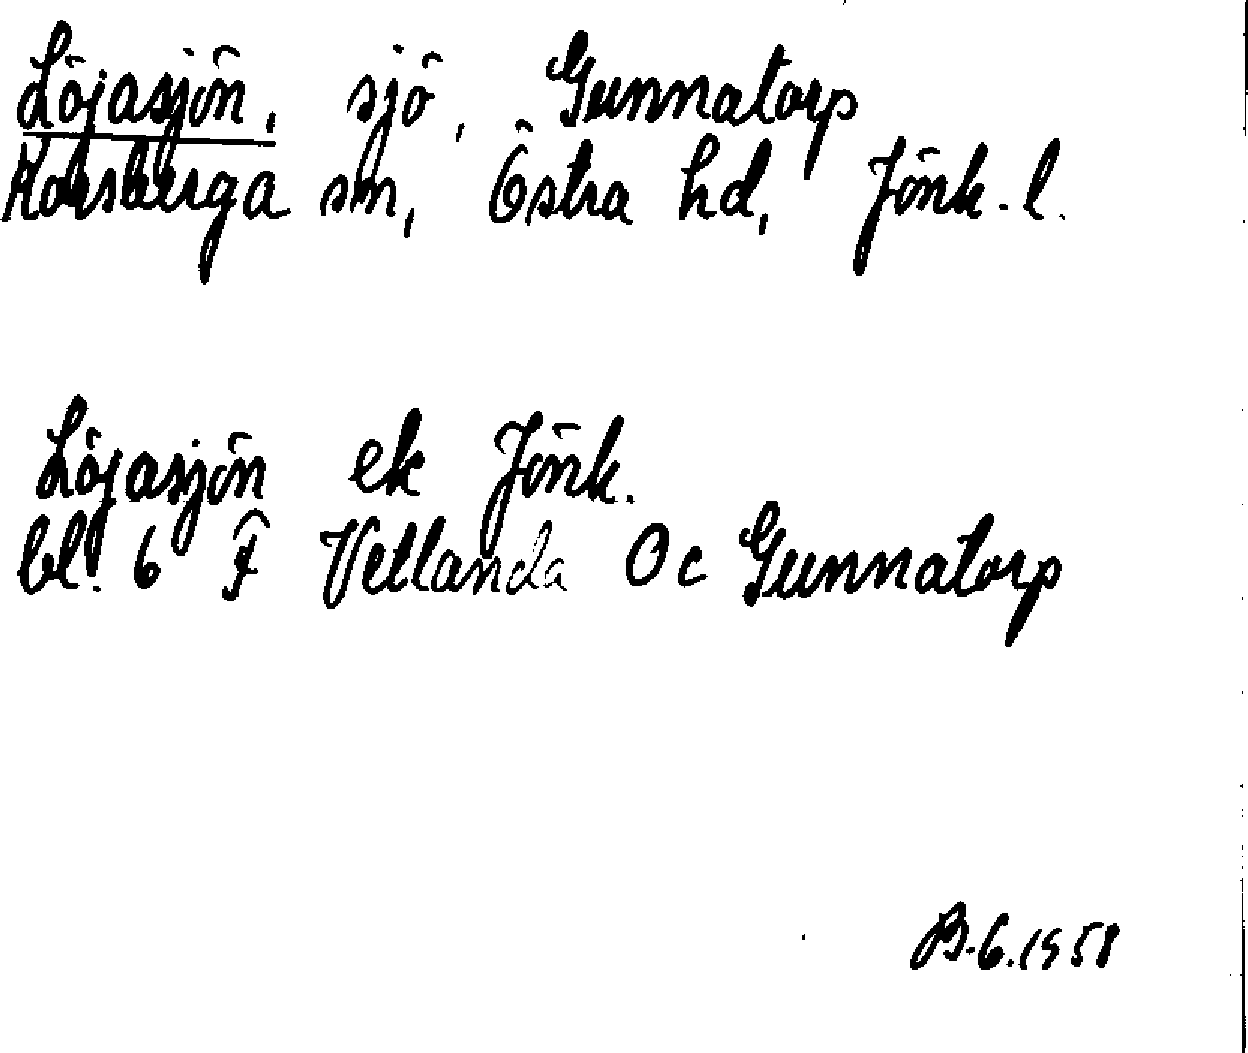 Löjasjön, sjö, Gunnatorp
Korsberga sn, Östra hd, Jönk. l.
Löjasjön ek Jönk.
bl. 6 F Vetlanda Oc Gunnatorp
B.G. 1958